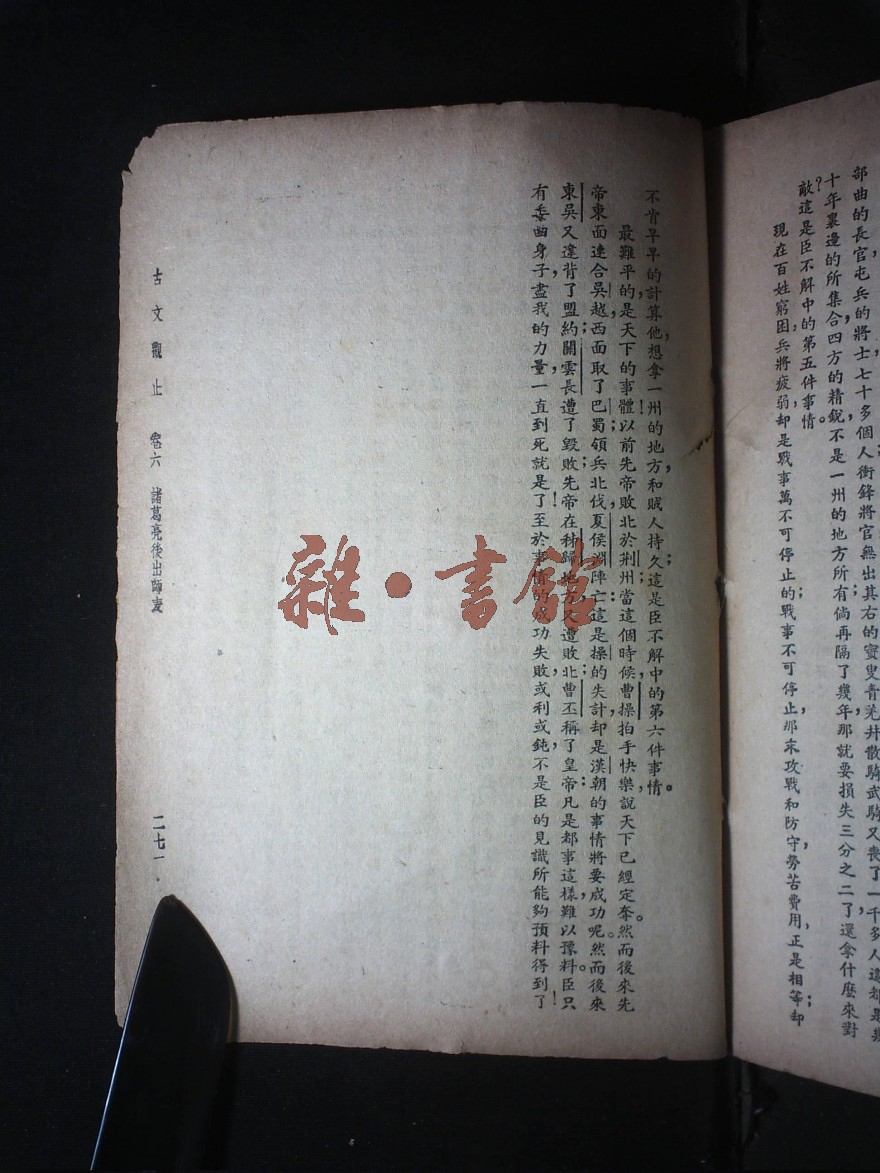 部曲的長官，屯兵的將士七十多個人衝鋒將官無出其右的賨叟青羌井散騎武騎又喪了一千多人這都是幾
十年裏邊的所集合四方的精銳，不是一州的地方所有；倘再隔了幾年，那就要損失三分之二了還拿什麼來對
敵？這是臣不解中的第五件事情。
現在百姓窮困，兵將疲弱，却是戰事萬不可停止的；戰事不可停止，那末攻戰和防守，勞苦費用，正是相等；却
不肯早早的計算他，想拿一州的地方，和賊人持久；這是臣不解中的第六件事情。
最難平的，是天下的事體！以前先帝敗北於荊州；當這個時候，曹操拍手快樂，說天下已經定奪。然而後來先
帝東面連合吳越，西面取了巴蜀；領兵北伐，夏侯淵陣亡：這是操的失計，却是漢朝的事情將要成功呢。然而後來
東吳又違背了盟約；關雲長遭了毀敗；先帝在秭歸地方，又遭敗北；曹丕稱了皇帝：凡是都事這樣，難以豫料。臣只
有委曲身子，盡我的力量，一直到死就是了！至於事情的成功失敗，或利或鈍，不是臣的見識所能夠預料得到了！
古文觀止 卷六 諸葛亮後出師表
二七一
雜·書館